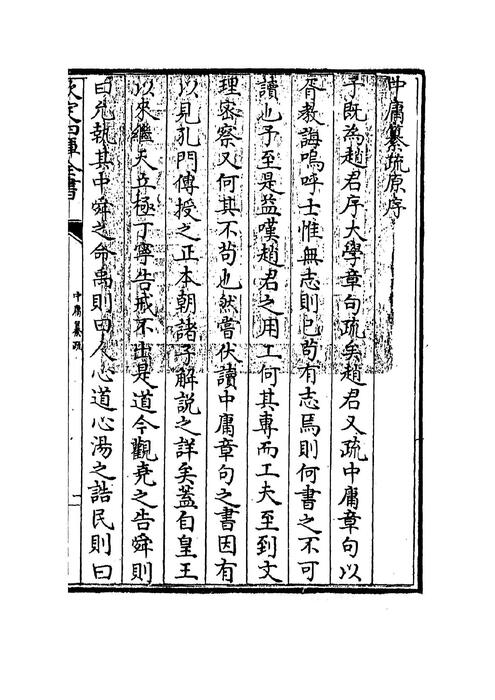 中庸纂疏原序
予既為趙君序大學章句疏矣趙君又疏中庸章句以
胥教誨嗚呼士惟無志則已茍有志焉則何書之不可
讀也予至是益嘆趙君之用工何其專而工夫至到文
理密察又何其不茍也然嘗伏讀中庸章句之書因有
以見孔門傳授之正本朝諸子解說之詳矣蓋自皇王
以來繼天立極丁寧告戒不出是道今觀堯之告舜則
曰允執其中舜之命禹則曰人心道心湯之誥民則曰
欽定四庫全書
中庸纂疏
一